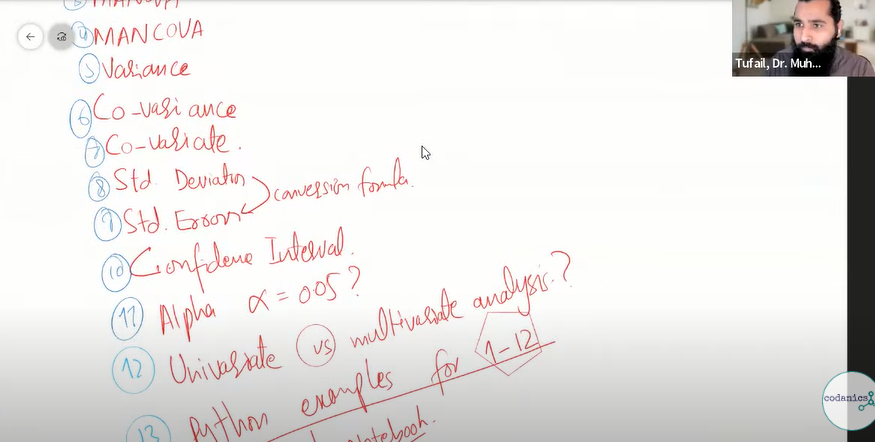 ③ MANOVA
④ MANCOVA
⑤ Variance
⑥ Co-variance
⑦ Co-variate.
⑧ Std. Deviation
conversion formula.
⑨ Std. Error
⑩ Confidence Interval.
⑪ Alpha α = 0.05?
⑫ Univariate vs multivariate analysis.?
⑬ Python examples for 1-12
Notebook.
Tufail, Dr. Muh...
codanics